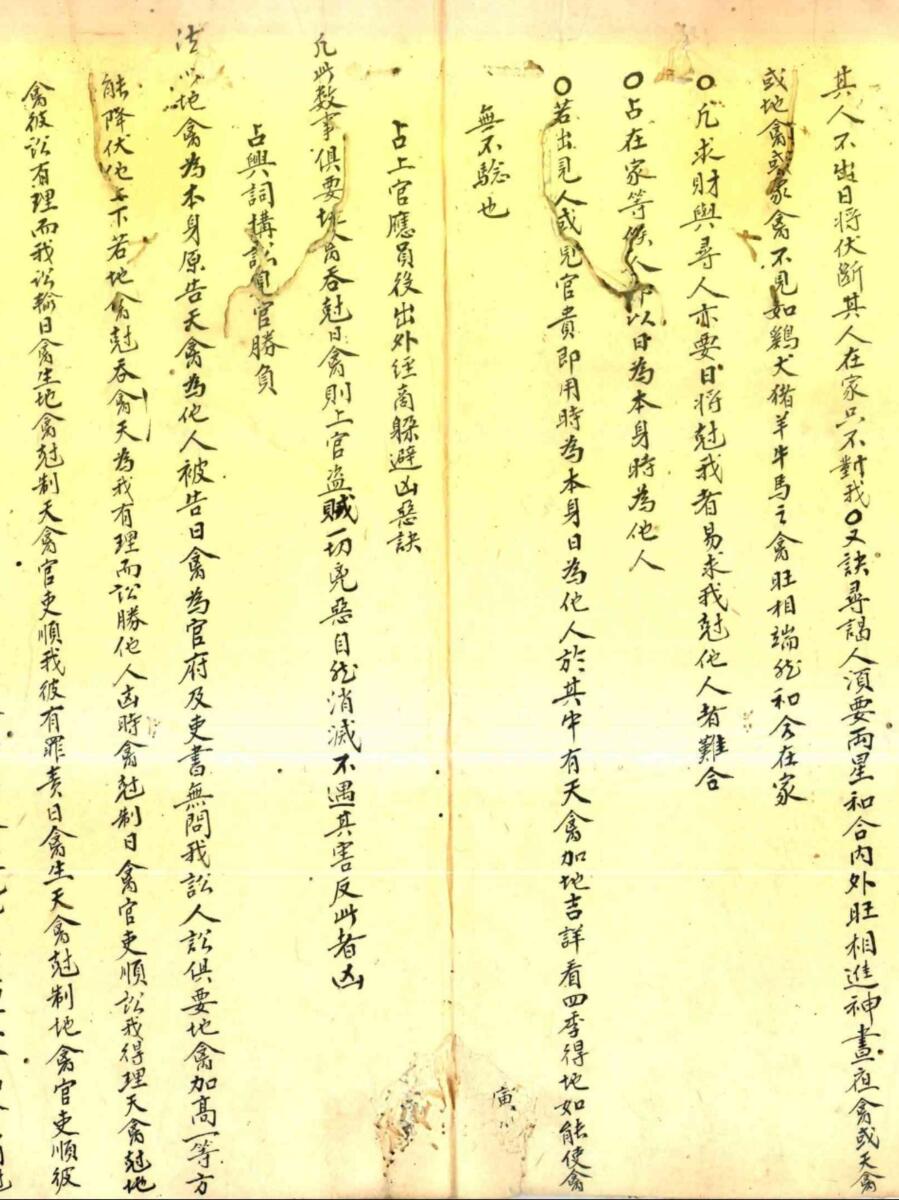 其人不出日将伏斷其人在家只不對我〇又訣尋謁人須要兩星和合內外旺相進神晝夜禽或天禽
或地禽或家禽不見如鷄犬猪羊牛馬之禽旺相端然和合在家
〇凡求財與尋人亦要日将尅我者易求我尅他人者難合
〇占在家等候人即以日為本身時為他人
〇若出見人或見官貴即用時為本身日為他人於其中有天禽加地吉詳看四季得地如能使禽
無不騐也
占上官應員役出外經商躲避凶惡訣
凡此数事俱要地禽吞尅日禽則上官盗贼一切兇惡自然消滅不遇其害反此者凶
占興詞搆訟見官勝負
法以地禽為本身原告天禽為他人被告日禽為官府及吏書無問我訟人訟俱要地禽加髙一等方
能降伏他上下若地禽尅吞禽天為我有理而訟勝他人凶時禽尅制日禽官吏順訟我得理天禽尅地
禽彼訟有理而我訟輸日禽生地禽尅制天禽官吏順我彼有罪責日禽生天禽尅制地禽官吏順彼
寅